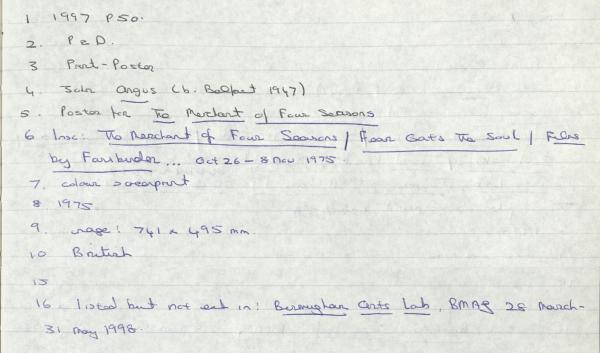 1 1997 P50.
2. P & D.
3 Print-Poster
4. John Angus (b. Belfast 1947)
5. Poster for The Merchant of Four Seasons
6. Insc: The Merchant of Four Seasons / Fear Eats The Soul / Films
by Fassbinder... Oct 26 - 8 Nov 1975.
7. colour screenprint
8 1975.
9. image: 741 x 495 mm.
10 British
15
16. listed but not exh in: Birmingham Arts Lab, BMAG 28 March -
31 May 1998.